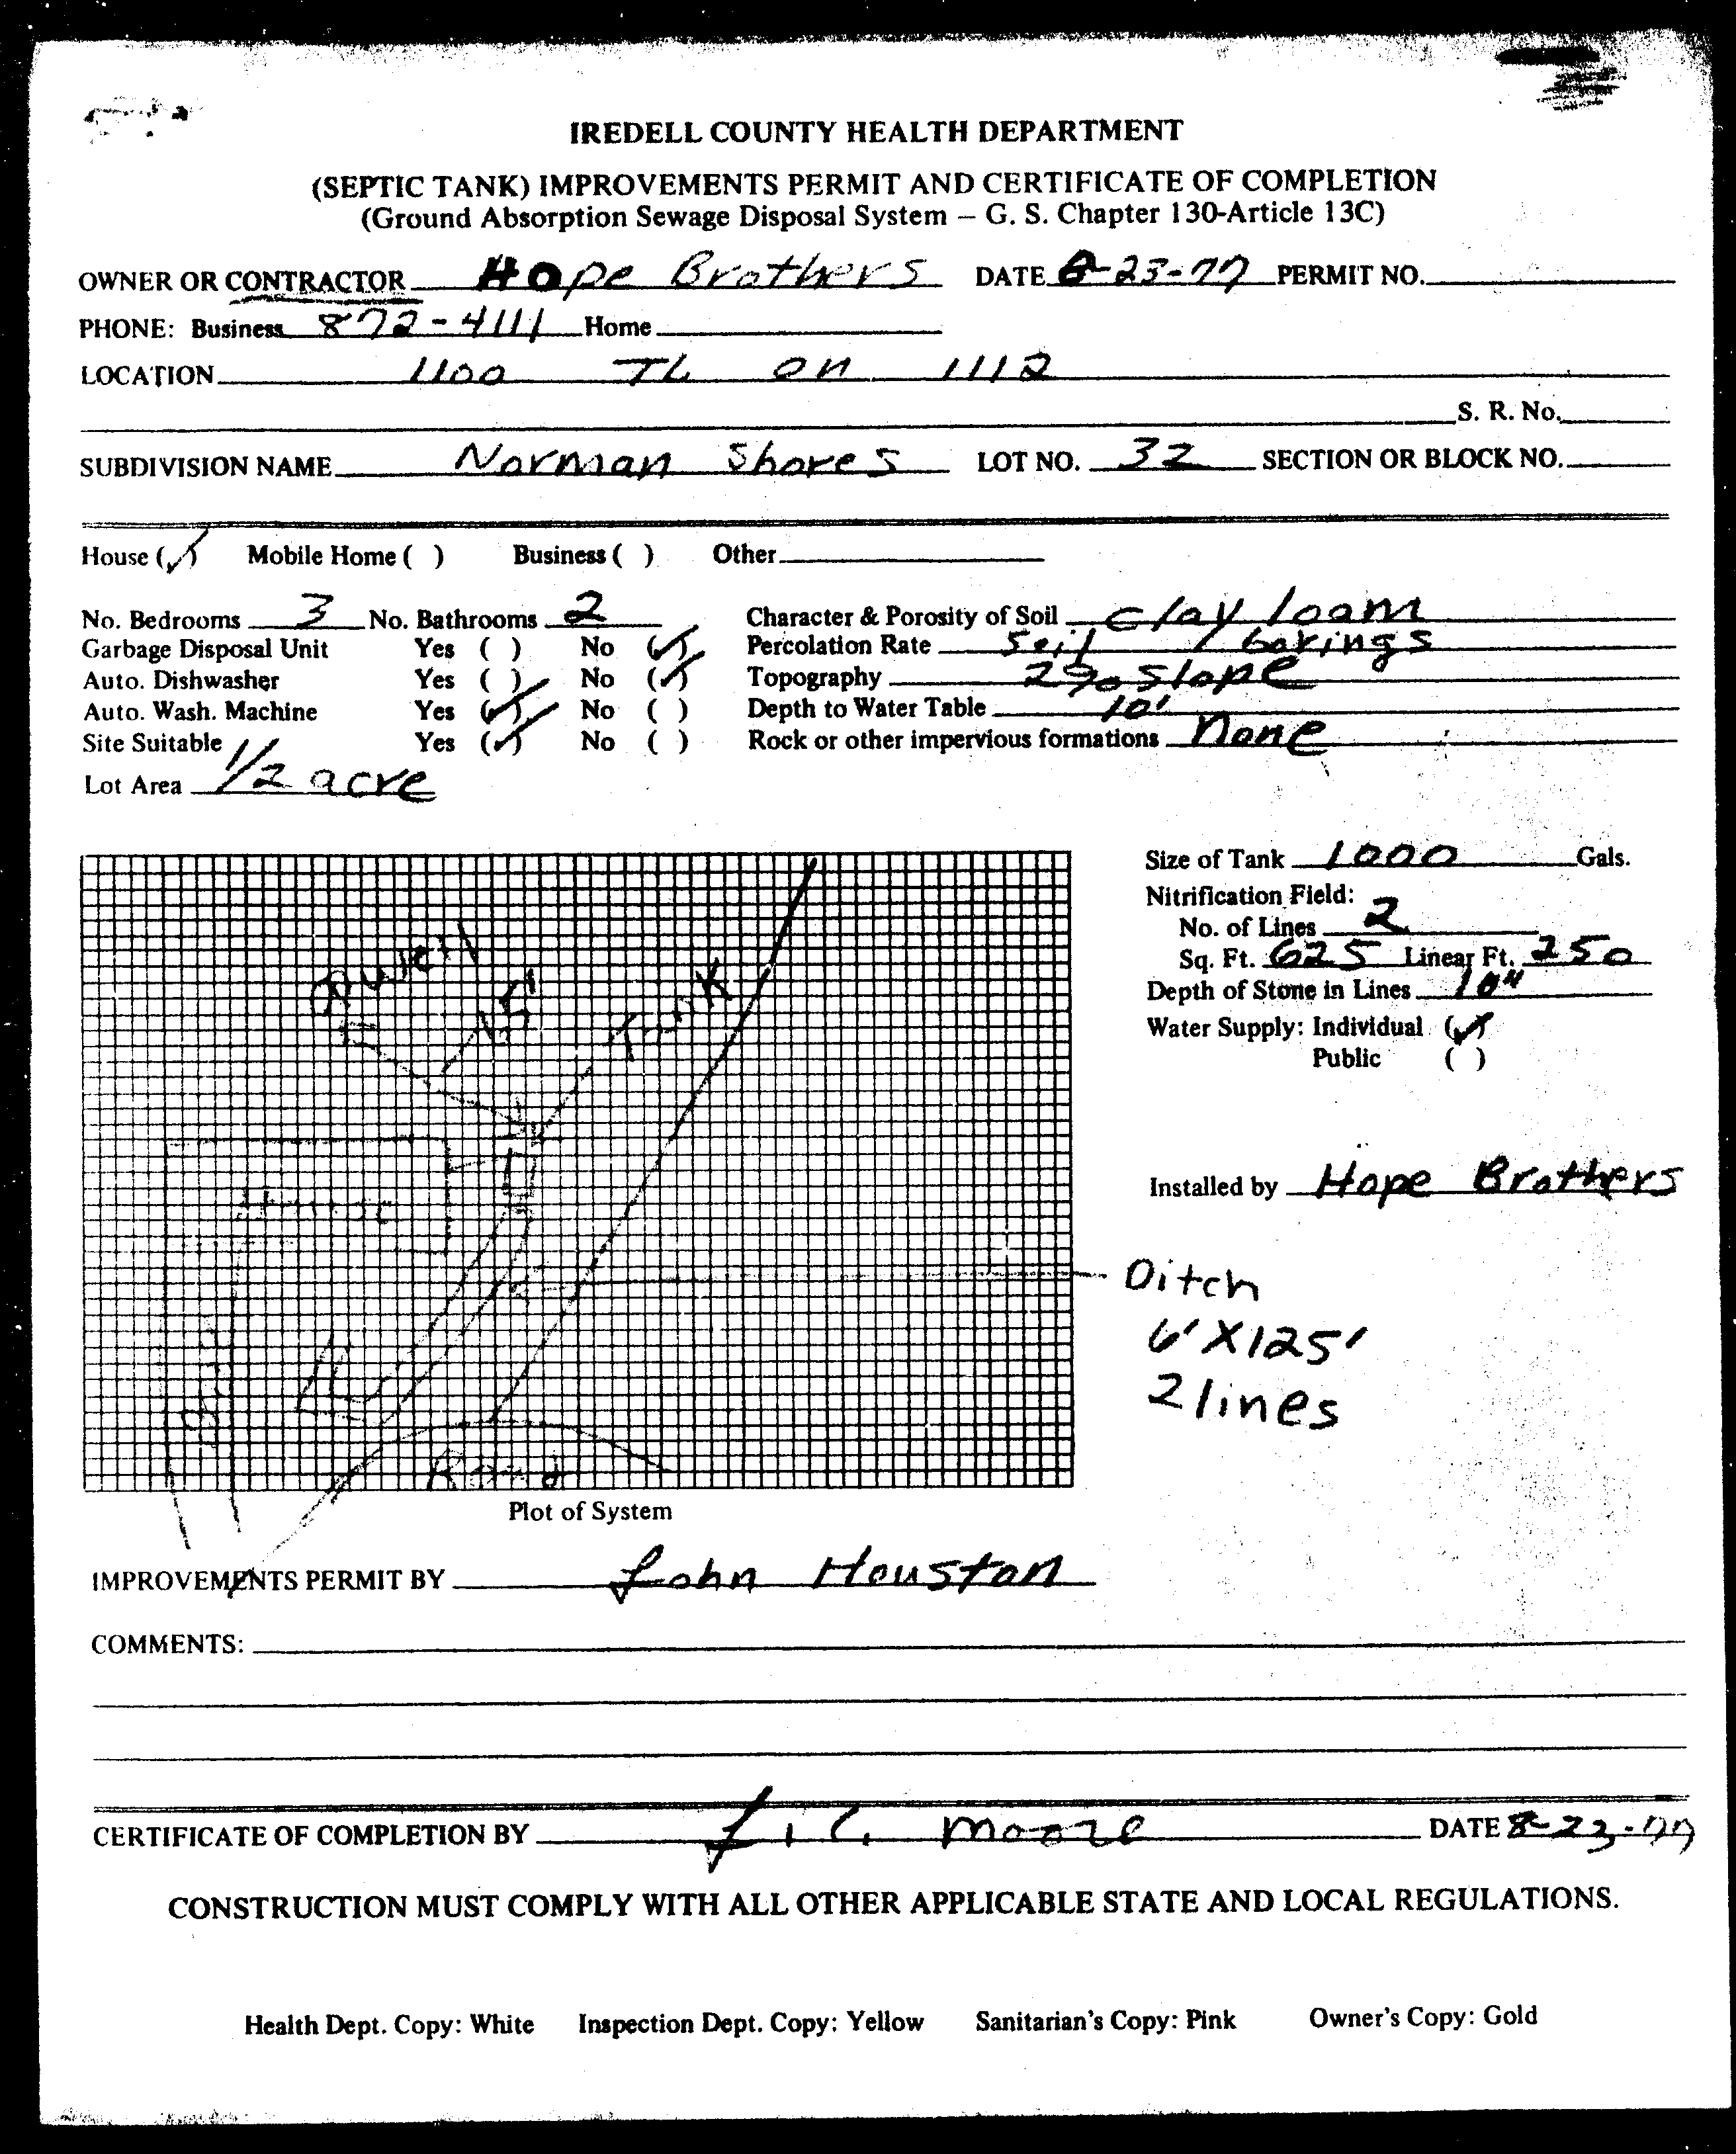 IREDELL COUNTY HEALTH DEPARTMENT
(SEPTIC TANK) IMPROVEMENTS PERMIT AND CERTIFICATE OF COMPLETION
(Ground Absorption Sewage Disposal System – G. S. Chapter 130-Article 13C)
OWNER OR CONTRACTOR Hope Brothers DATE 8-23-77 PERMIT NO.
PHONE: Business 872-4111 Home
LOCATION 1100 TL on 1112
S. R. No.
SUBDIVISION NAME Norman Shores LOT NO. 32 SECTION OR BLOCK NO.
House (✓) Mobile Home ( ) Business ( ) Other
No. Bedrooms 3 No. Bathrooms 2 Character & Porosity of Soil clay loam
Garbage Disposal Unit Yes ( ) No (✓) Percolation Rate Soil borings
Auto. Dishwasher Yes ( ) No (✓) Topography 2% slope
Auto. Wash. Machine Yes (✓) No ( ) Depth to Water Table 10'
Site Suitable Yes (✓) No ( ) Rock or other impervious formations none
Lot Area 1/2 acre
Size of Tank 1000 Gals.
Nitrification Field:
No. of Lines 2
Sq. Ft. 625 Linear Ft. 250
Depth of Stone in Lines 10"
Water Supply: Individual (✓)
Public ( )
Well
Tank
House
Installed by Hope Brothers
Ditch
6' X 125'
2 lines
Road
Plot of System
IMPROVEMENTS PERMIT BY John Houston
COMMENTS:
CERTIFICATE OF COMPLETION BY Moore DATE 8-23-77
CONSTRUCTION MUST COMPLY WITH ALL OTHER APPLICABLE STATE AND LOCAL REGULATIONS.
Health Dept. Copy: White Inspection Dept. Copy: Yellow Sanitarian's Copy: Pink Owner's Copy: Gold